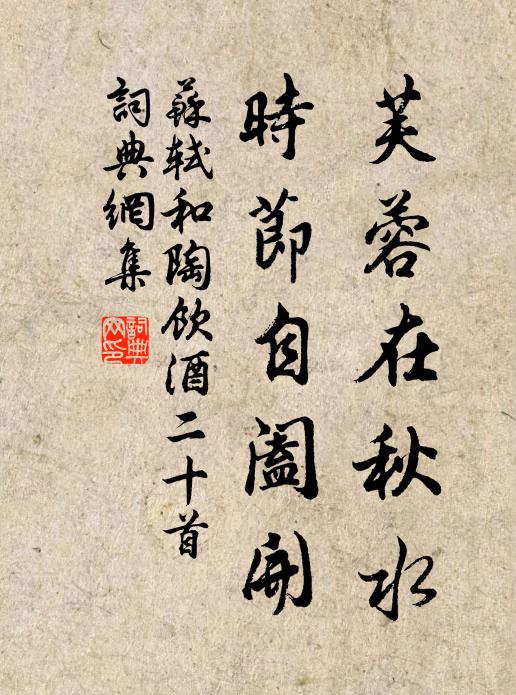 芙蓉在秋水
時節自闔開
蘇軾和陶飲酒二十首
詞典網集
詞典网印